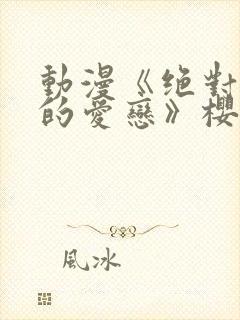 動漫《絕對
的愛戀》櫻
風冰